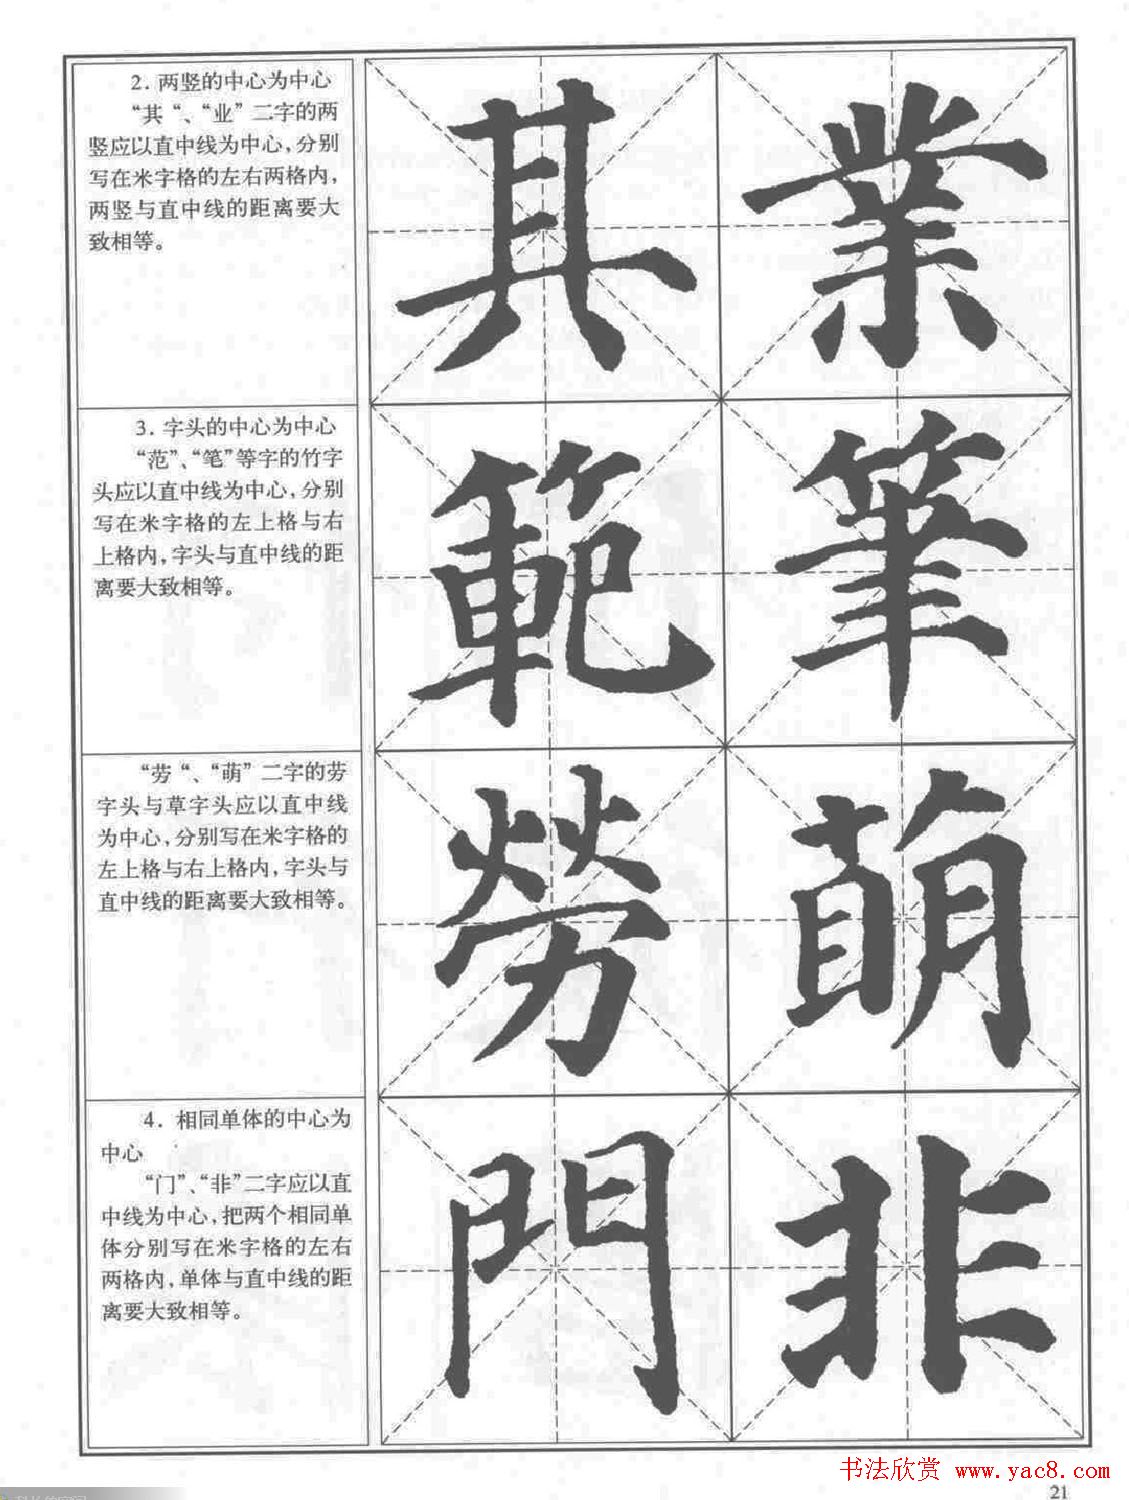 2. 两竖的中心为中心
“其“、“业”二字的两
竖应以直中线为中心,分别
写在米字格的左右两格内,
两竖与直中线的距离要大
致相等。
其 業
3. 字头的中心为中心
“范”、“笔”等字的竹字
头应以直中线为中心,分别
写在米字格的左上格与右
上格内,字头与直中线的距
离要大致相等。
範 筆
“劳“、“萌”二字的劳
字头与草字头应以直中线
为中心,分别写在米字格的
左上格与右上格内,字头与
直中线的距离要大致相等。
勞 萌
4. 相同单体的中心为
中心
“门”、“非”二字应以直
中线为中心,把两个相同单
体分别写在米字格的左右
两格内,单体与直中线的距
离要大致相等。
門 非
书法欣赏 www.yac8.com
21